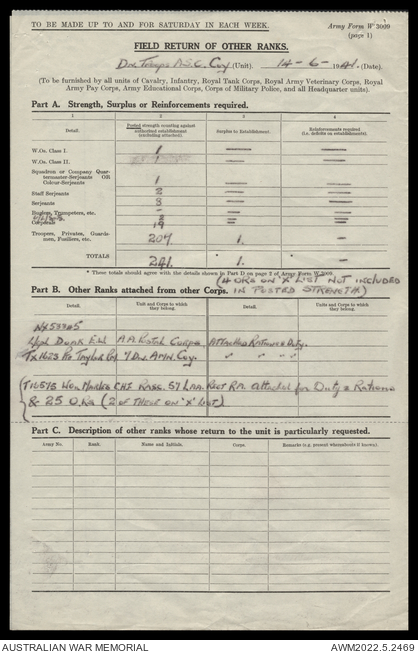 TO BE MADE UP TO AND FOR SATURDAY IN EACH WEEK.
Army Form W 3009
(page 1)
FIELD RETURN OF OTHER RANKS.
Div Troops A.S.C. Coy (Unit). 14-6-1941. (Date).
(To be furnished by all units of Cavalry, Infantry, Royal Tank Corps, Royal Army Veterinary Corps, Royal
Army Pay Corps, Army Educational Corps, Corps of Military Police, and all Headquarter units).
Part A. Strength, Surplus or Reinforcements required.
1 2 3 4
Detail. Posted strength counting against authorised establishment (excluding attached). Surplus to Establishment. Reinforcements required (i.e. deficits on establishments).
W.Os. Class I. 1 — —
W.Os. Class II. 1 — —
Squadron or Company Quar-
termaster-Serjeants OR
Colour-Serjeants 1 — —
Staff Serjeants 2 — —
Serjeants 8 — —
Buglers, Trumpeters, etc. — — —
Corporals 19 — —
Troopers, Privates, Guards-
men, Fusiliers, etc. 207 1. —
TOTALS 241. 1. —
* These totals should agree with the details shown in Part D on page 2 of Army Form W 3009.
(4 ORs ON 'X' LIST NOT INCLUDED
IN POSTED STRENGTH)
Part B. Other Ranks attached from other Corps.
Detail. Unit and Corps to which they belong. Detail. Unit and Corps to which they belong.
NX53305
A.A. Postal Corps Attached Rations & Duty.
Pte Taylor 7 Div. A.M.W. Coy. " " "
57 LAA. Regt RA. attached for Duty & Rations
& 25 O.Rs (2 OF THESE ON 'X' LIST)
Part C. Description of other ranks whose return to the unit is particularly requested.
Army No. Rank. Name and Initials. Corps. Remarks (e.g. present whereabouts if known).
AUSTRALIAN WAR MEMORIAL
AWM2022.5.2469